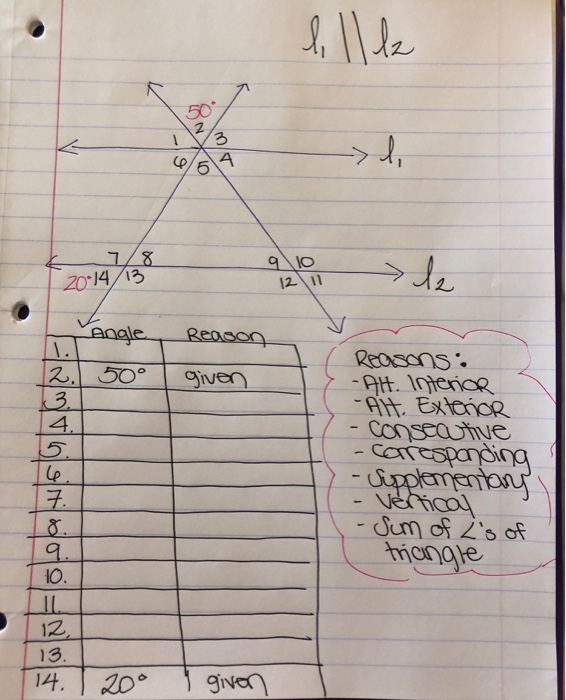 l₁ || l₂
50°
1 2 3
l₁
6 5 4
7 8 9 10
20° 14 13 12 11
l₂
Angle Reason
1.
2. 50° given
3.
4.
5.
6.
7.
8.
9.
10.
11.
12.
13.
14. 20° given
Reasons:
- Alt. Interior
- Alt. Exterior
- Consecutive
- Corresponding
- Supplementary
- Vertical
- Sum of ∠'s of
triangle